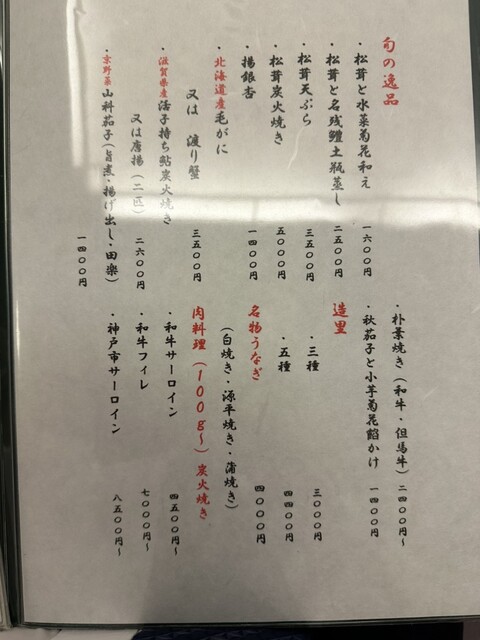 旬の逸品
・松茸と水菜菊花和え 一六〇〇円
・松茸と名残鱧土瓶蒸し 二五〇〇円
・松茸天ぷら 三五〇〇円
・松茸炭火焼き 五〇〇〇円
・揚銀杏 一四〇〇円
・北海道産毛がに
又は 渡り蟹 三五〇〇円
・滋賀県産活子持ち鮎炭火焼き
又は唐揚(二匹) 二六〇〇円
・京野菜山科茄子(旨煮・揚げ出し・田楽)
一四〇〇円
・朴葉焼き(和牛・但馬牛) 二四〇〇円〜
・秋茄子と小芋菊花餡かけ 一四〇〇円
造里
・三種 三〇〇〇円
・五種 四四〇〇円
名物うなぎ 四〇〇〇円
(白焼き・源平焼き・蒲焼き)
肉料理(100g〜)炭火焼き
・和牛サーロイン 四五〇〇円〜
・和牛フィレ 七〇〇〇円〜
・神戸市サーロイン 八五〇〇円〜